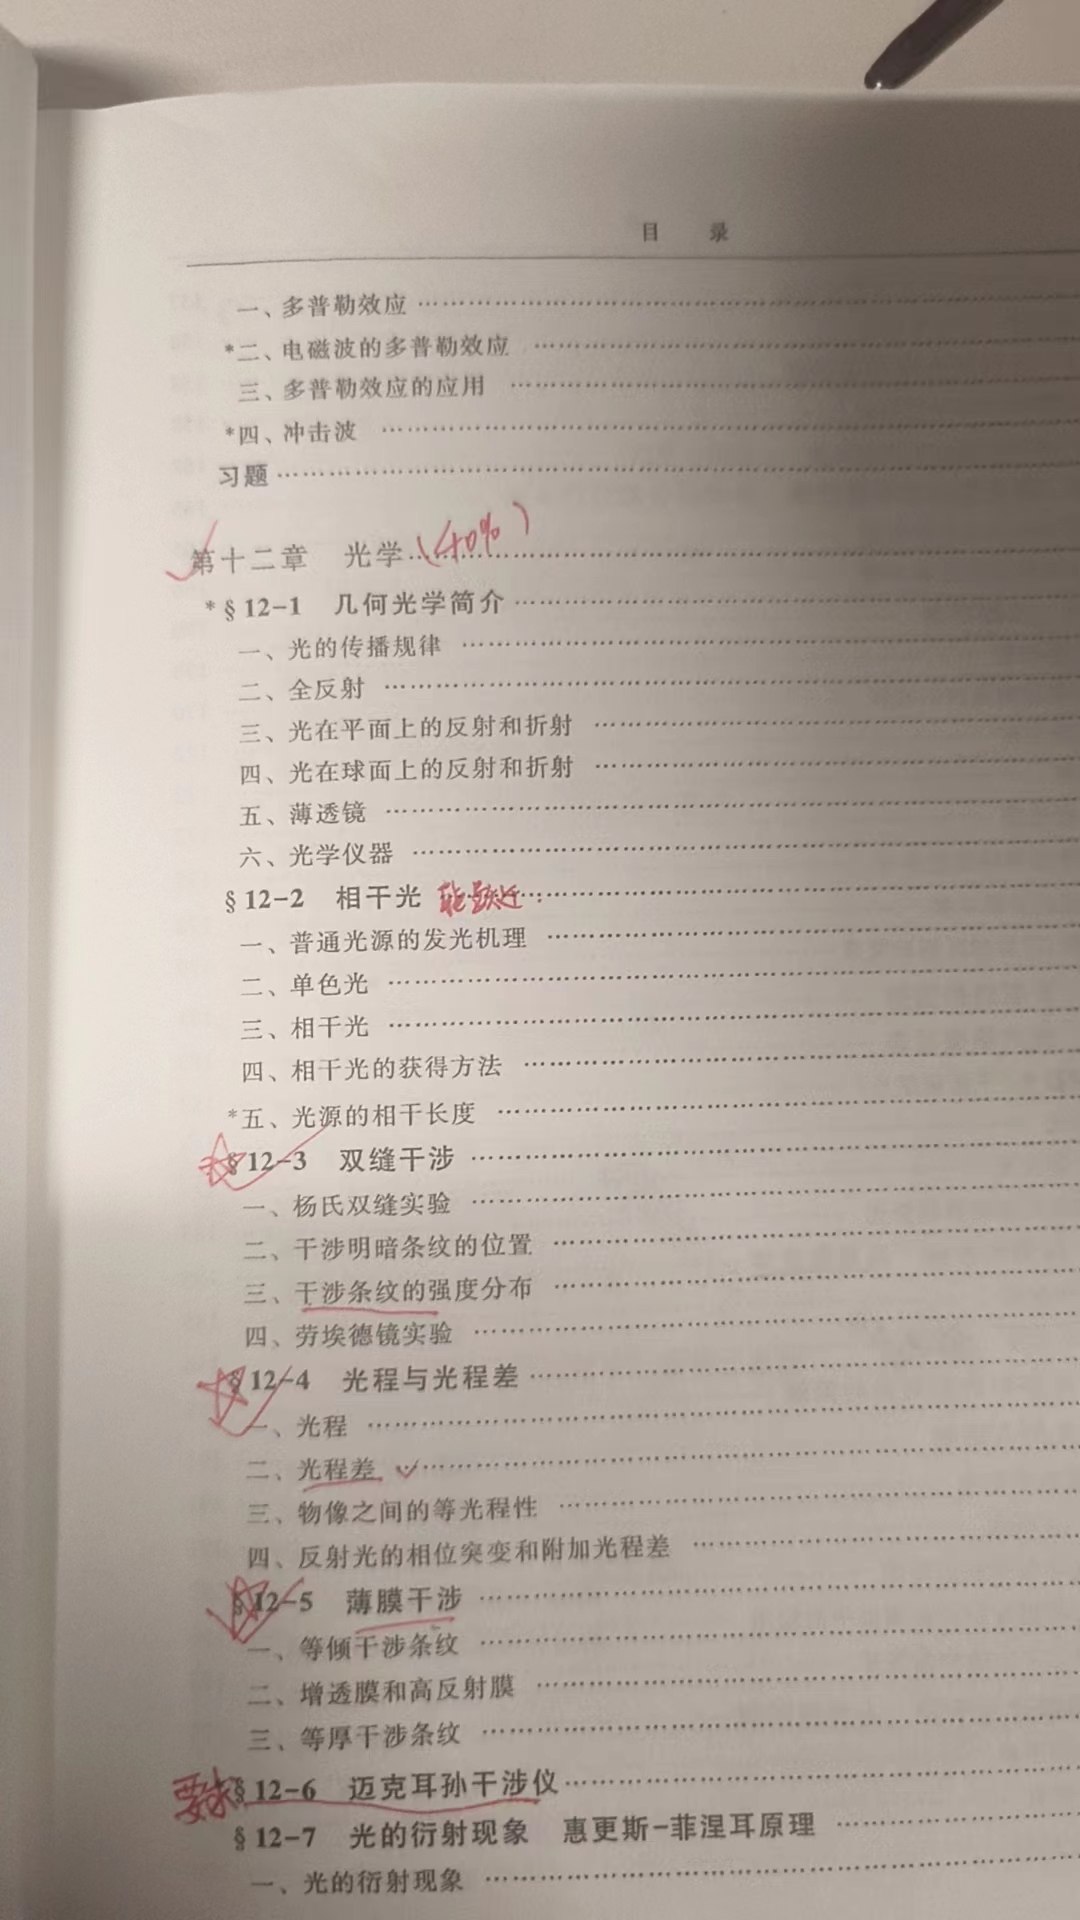 目 录
一、多普勒效应
*二、电磁波的多普勒效应
三、多普勒效应的应用
*四、冲击波
习题
第十二章 光学 (40%)
*§12-1 几何光学简介
一、光的传播规律
二、全反射
三、光在平面上的反射和折射
四、光在球面上的反射和折射
五、薄透镜
六、光学仪器
§12-2 相干光 能级跃迁
一、普通光源的发光机理
二、单色光
三、相干光
四、相干光的获得方法
*五、光源的相干长度
§12-3 双缝干涉
一、杨氏双缝实验
二、干涉明暗条纹的位置
三、干涉条纹的强度分布
四、劳埃德镜实验
§12-4 光程与光程差
一、光程
二、光程差
三、物像之间的等光程性
四、反射光的相位突变和附加光程差
§12-5 薄膜干涉
一、等倾干涉条纹
二、增透膜和高反射膜
三、等厚干涉条纹
要求 §12-6 迈克耳孙干涉仪
§12-7 光的衍射现象 惠更斯-菲涅耳原理
一、光的衍射现象